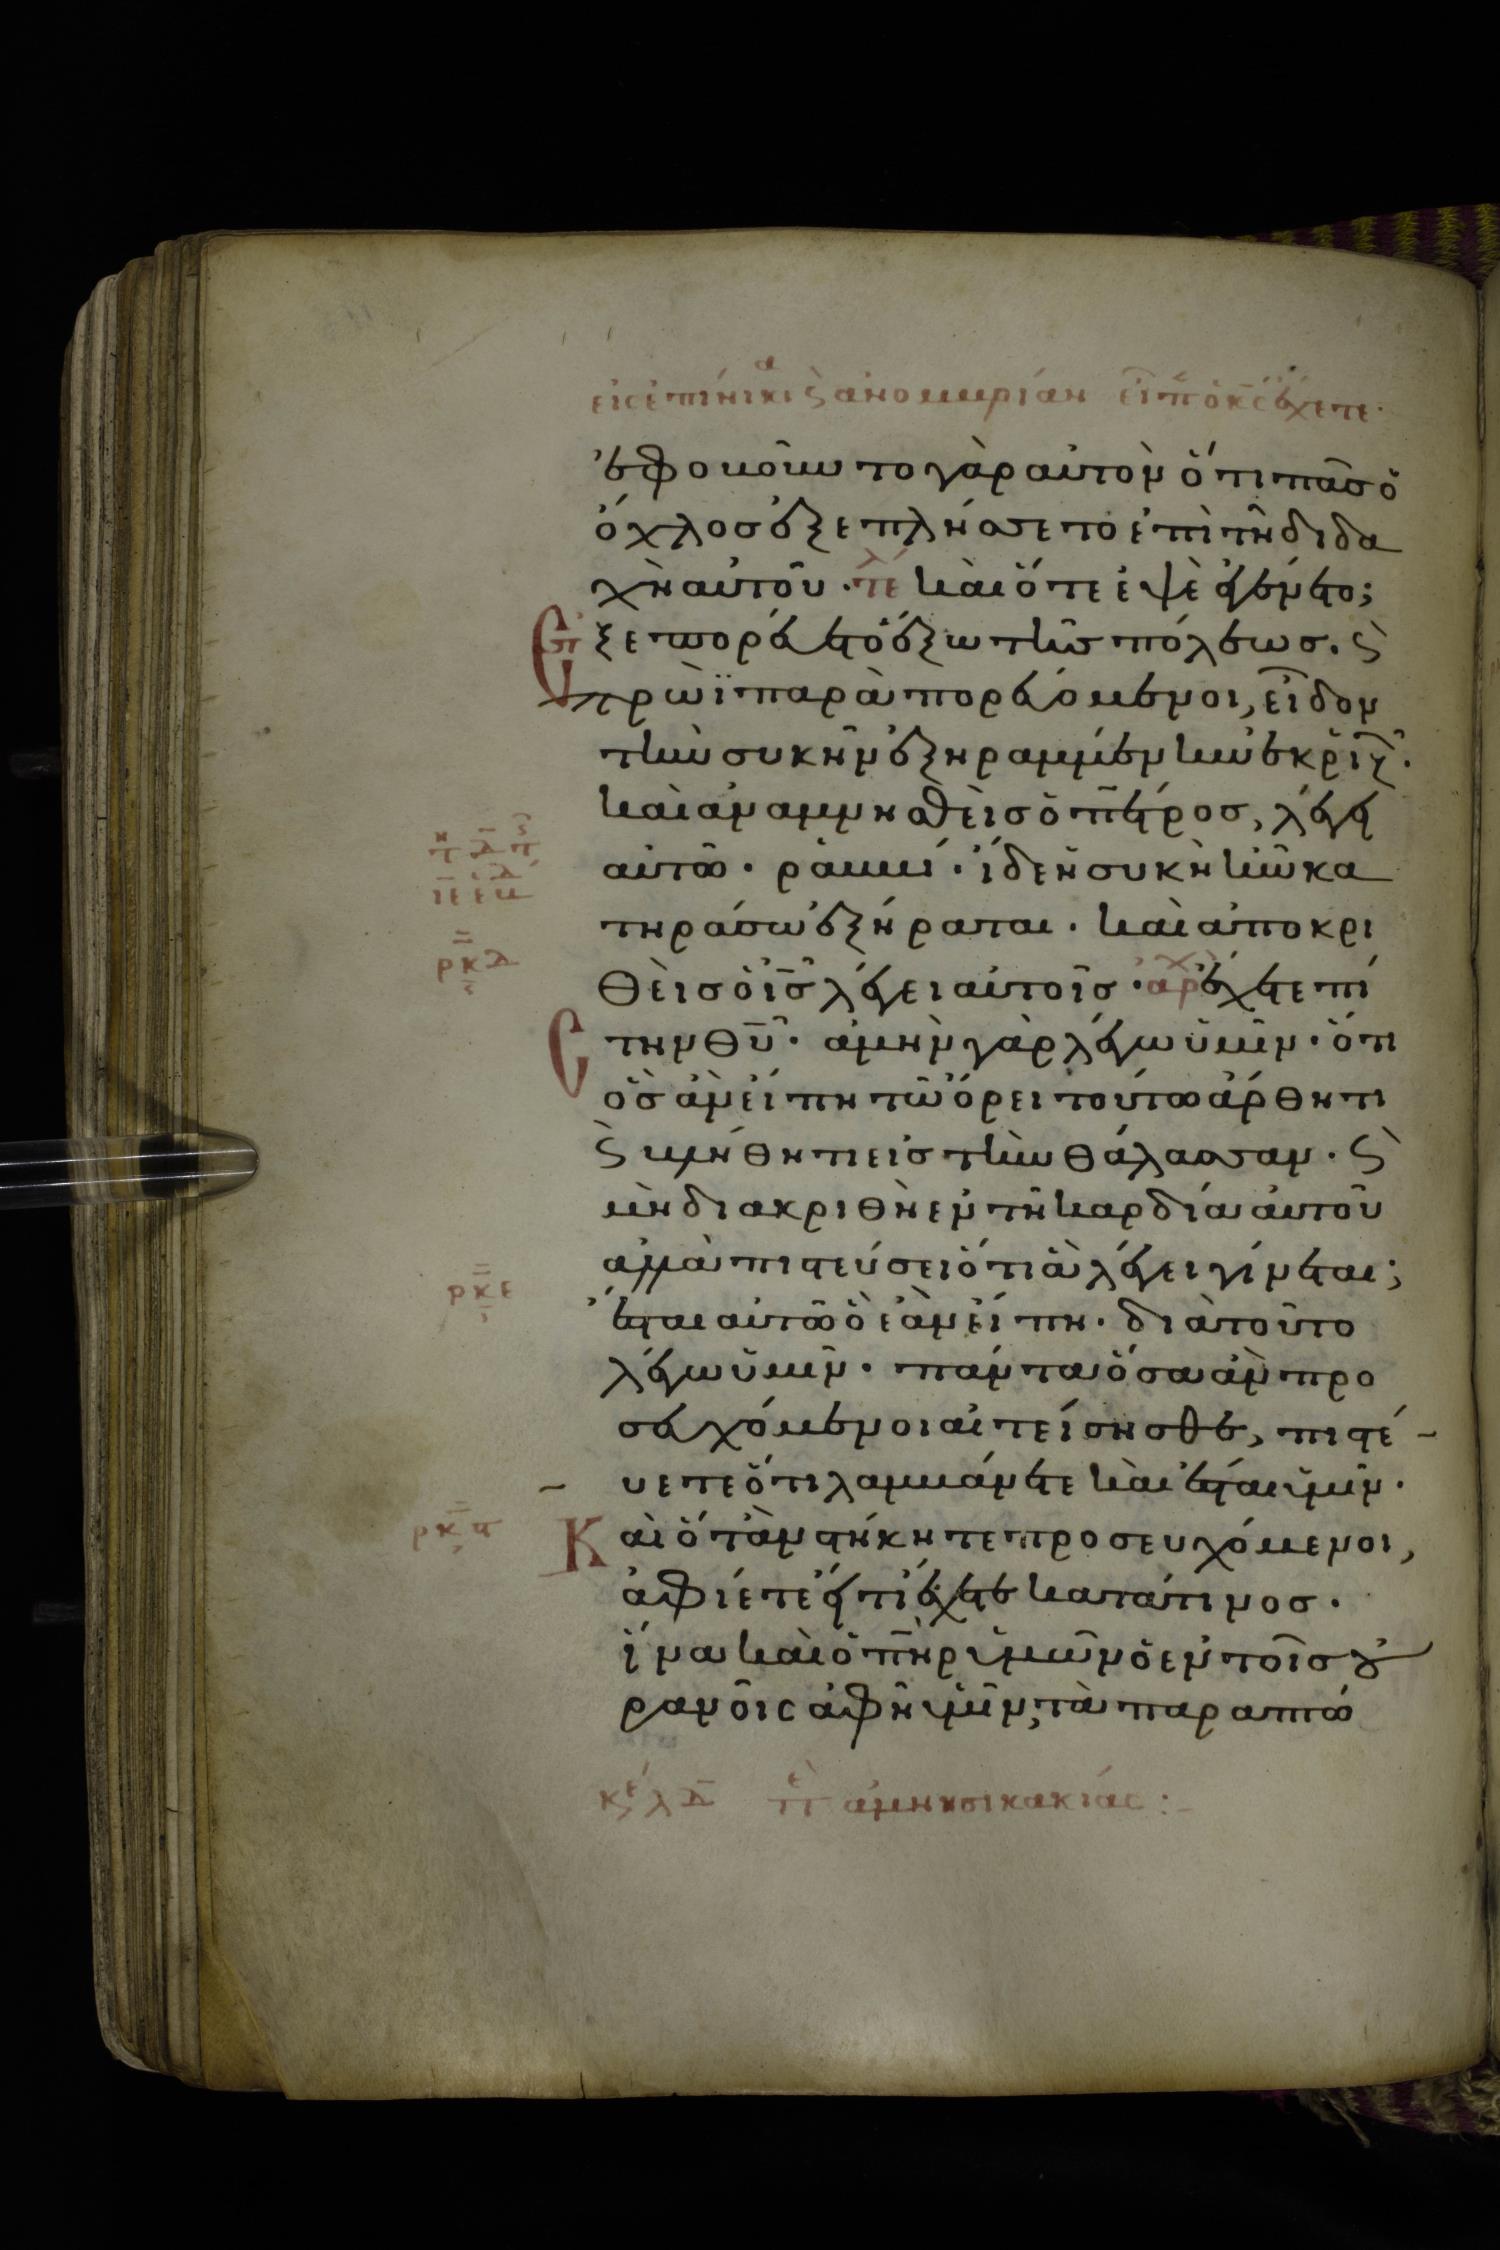 εἰς ἐπινίκια ϛ ἀνομβρίαν εἶπ ὁ κς ἔχετε·
ἐφοβοῦντο γὰρ αὐτὸν ὅτι πᾶσ ὁ
ὄχλοσ ἐξεπλήσσετο ἐπὶ τῆ διδα
χῆ αὐτοῦ · τέλ καὶ ὅτε ἐψὲ ἐγένετο;
ἐξεπορεύετο ἔξω τῆσ πόλεωσ. ϛ
πρωῒ παραπορευόμενοι, εἶδον
τὴν συκῆν ἐξηραμμένην ἐκ ῥιζῶν·
καὶ ἀναμνησθεὶσ ὁ πέτροσ, λέγει
αὐτῶ · ῥαββί · ἴδε ἡ συκὴ ἣν κα
τηράσω ἐξήραται · καὶ ἀποκρι
θεὶσ ὁ ισ λέγει αὐτοῖσ · ἀρχ ἔχετε πί
στιν θυ · ἀμὴν γὰρ λέγω ὑμῖν · ὅτι
ὃσ ἂν εἴπη τῶ ὄρει τούτω ἄρθητι
ϛ βλήθητι εἰσ τὴν θάλασσαν · ϛ
μὴ διακριθῆ ἐν τῆ καρδία αὐτοῦ
ἀλλὰ πιστεύσει ὅτι ἃ λέγει γίνεται;
ἔσται αὐτῶ ὃ ἐὰν εἴπη · διὰ τοῦτο
λέγω ὑμῖν · πάντα ὅσα ἂν προ
σευχόμενοι αἰτείσησθε, πιστέ
υετε ὅτι λαμβάνετε καὶ ἔσται ὑμῖν ·
Καὶ ὅταν στήκητε προσευχόμενοι,
ἀφίετε εἴ τι ἔχετε κατά τινοσ ·
ἵνα καὶ ὁ πηρ ὑμῶν ὁ ἐν τοῖσ οὐ
ρανοῖς ἀφῆ ὑμῖν, τὰ παραπτώ
ρκδ
ρκε
ρκϛ
κε λδ πε ἀμνησικακίας :